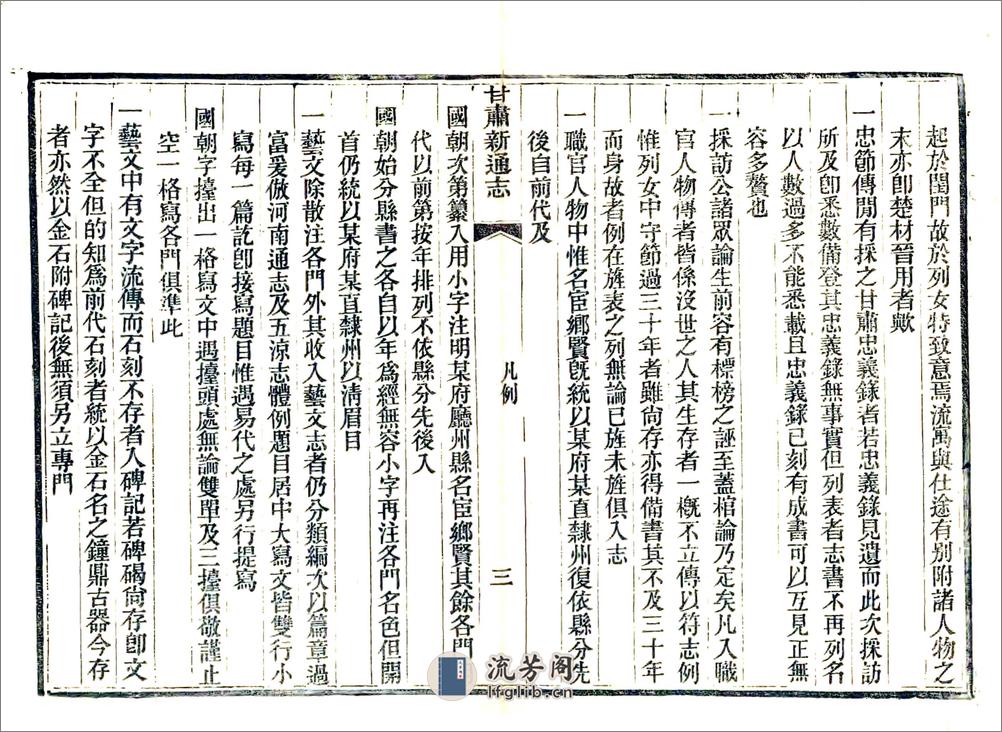 起於閨門故於列女特致意焉流寓與仕途有別附諸人物之
末亦卽楚材晉用者歟
一忠節傳聞有採之甘肅忠義錄者若忠義錄見遺而此次採訪
所及卽悉數備登其忠義錄無事實但一列表者志書不再列名
以人數過多不能悉載且忠義錄已刻有成書可以互見正無
容多贅也
一採訪公諸眾論生前容有標榜之誣至蓋棺論乃定矣凡入職
官人物傳者皆係沒世之人其生存者一槪不立傳以符志例
惟列女中守節過三十年者雖尙存亦得備書其不及三十年
而身故者例在旌表之列無論已旌未旌俱入志
一職官人物中惟名臣鄉賢旣統以某府某直隸州復依縣分先
後自前代及
甘肅新通志
凡例
三
國朝次第纂入用小字注明某府廳州縣名臣鄉賢其餘各門
代以前第按年排列不依縣分先後入
國朝始分縣書之各自以年爲經無容小字再注各門名色但開
首仍統以某府某直隸州以淸眉目
一藝文除散注各門外其收入藝文志者仍分類編次以篇章過
富爰倣河南通志及五涼志體例題目居中大寫文皆雙行小
寫每一篇訖卽接寫題目惟遇易代之處另行提寫
國朝字擡出一格寫文中遇擡頭處無論雙單及三擡俱敬謹止
空一格寫各門俱準此
一藝文中有文字流傳而石刻不存者入碑記若碑碣尙存卽文
字不全但的知爲前代石刻者統以金石名之鐘鼎古器今存
者亦然以金石附碑記後無須另立專門
流芳阁
lfglib.cn